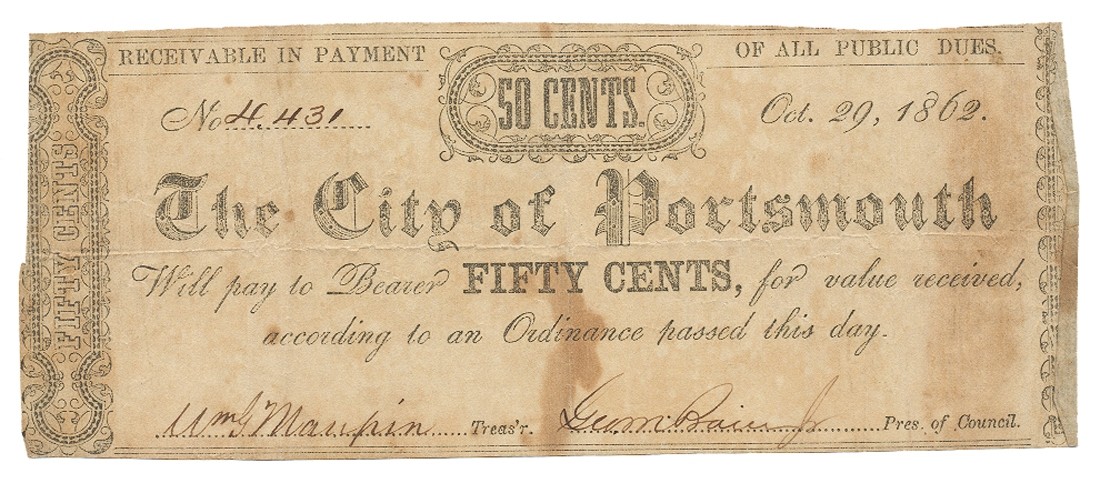 RECEIVABLE IN PAYMENT OF ALL PUBLIC DUES.
50 CENTS.
No 4,431 Oct. 29, 1862.
FIFTY CENTS
The City of Portsmouth
Will pay to Bearer FIFTY CENTS, for value received,
according to an Ordinance passed this day.
Wm G Maupin Treas'r. Geo m. Bain Jr Pres. of Council.